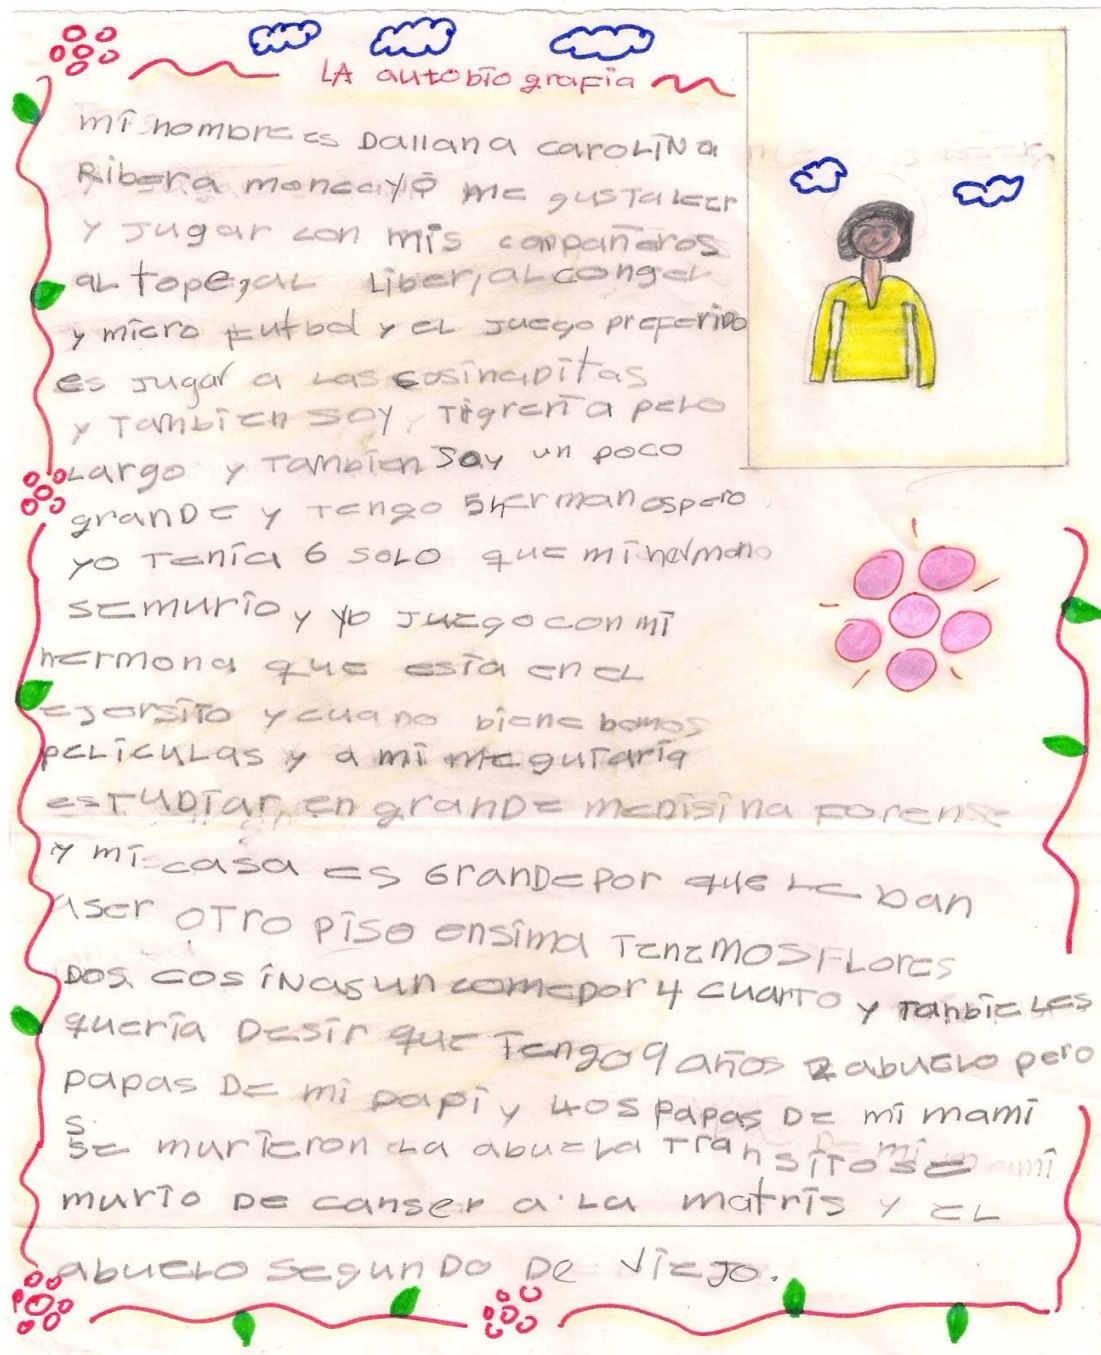 LA autobiografia
mi nombre es Dallana caroLiNa
Ribera moncayo me gusTa leer
y Jugar con mis conpañeros
aL tope, aL Liber, aL congeL
y micro futbol y eL Juego preferido
es Jugar a Las cosinaditas
y Tambien soy Trigreña peLo
Largo y Tambien Soy un poco
granDe y Tengo 5 hermanos pero
yo Tenia 6 soLo que mi hermano
se murio y yo Juego con mi
hermona que esta en eL
ejersiTo y cuano biene bemos
peLicuLas y a mi me gutaria
esTuDiar en granDe meDisina Forense
y mi casa es GranDe por que Le ban
aser oTro piso ensima TenemoS FLores
Dos cosiNas un comedor 4 cuarTo y Tanbie Les
queria Desir que Tengo 9 años 2 abueLo pero
papas De mi papi y Los papas De mi mami
se murieron La abueLa TranSiTo se
murio De canser a La matris y eL
abueLo SegunDo De viejo.